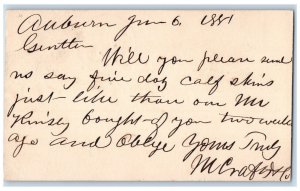 Auburn Jun 6, 1881
Gentlm
Will you please send
us say five doz calf skins
just like than our Mr
Kinsey bought of you two weeks
ago and Oblige Yours Truly